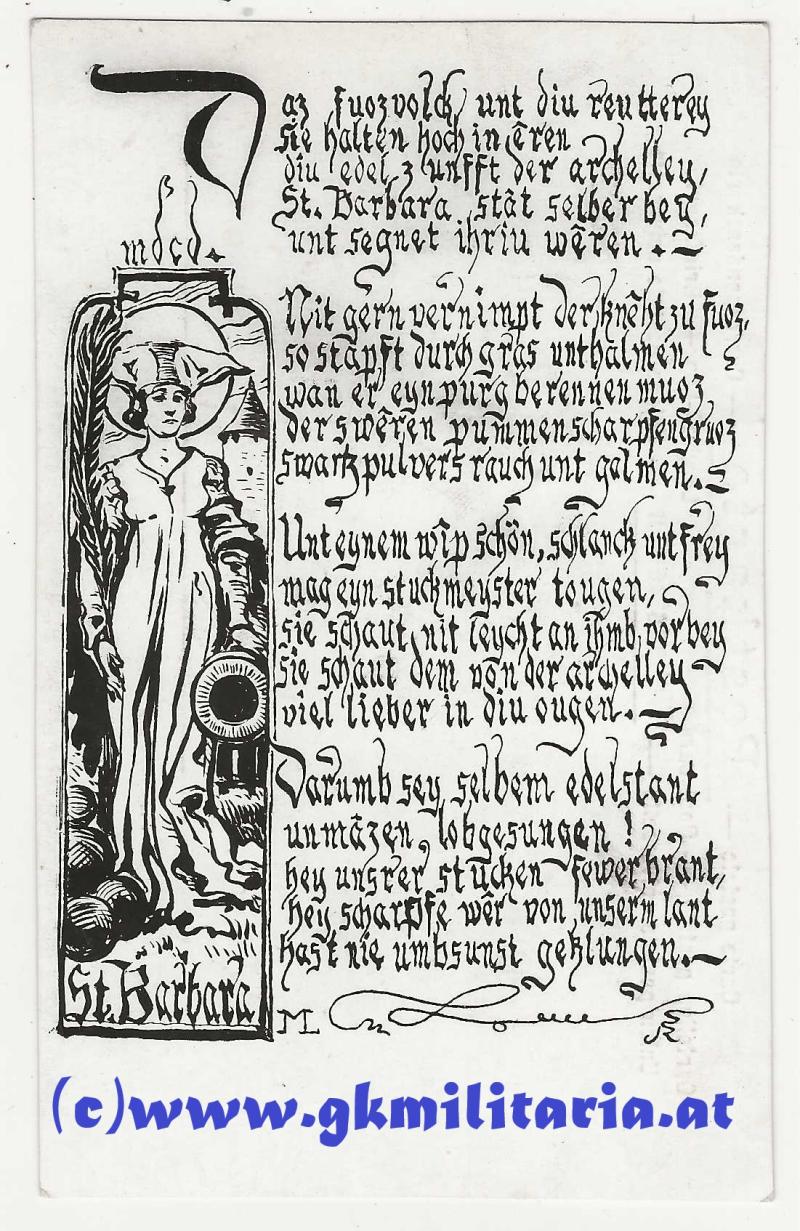 Daz fuozvolck unt diu reutterey
sie halten hoch in ēren
diu edel zunfft der archelley,
St. Barbara stāt selber bey,
unt segnet ihriu wēren.
mdcd.
Nit gern vernimpt der knēht zu fuoz,
so stapft durch gras unt halmen
wan er eyn purg berennen muoz,
der swēren pummen scharpfen gruoz
swartz pulvers rauch unt galmen.
Unt eynem wīp schön, schlanck unt frey
mag eyn stuckmeyster tougen,
sie schaut nit leycht an ihmb vorbey
sie schaut dem von der archelley
viel lieber in diu ougen.
Darumb sey selbem edelstant
unmāzen lobgesungen!
hey unsrer stucken fewerbrant,
hey scharpfe wēr von unserm lant
hast nie umbsunst geklungen.
St. Barbara
ML
(c)www.gkmilitaria.at